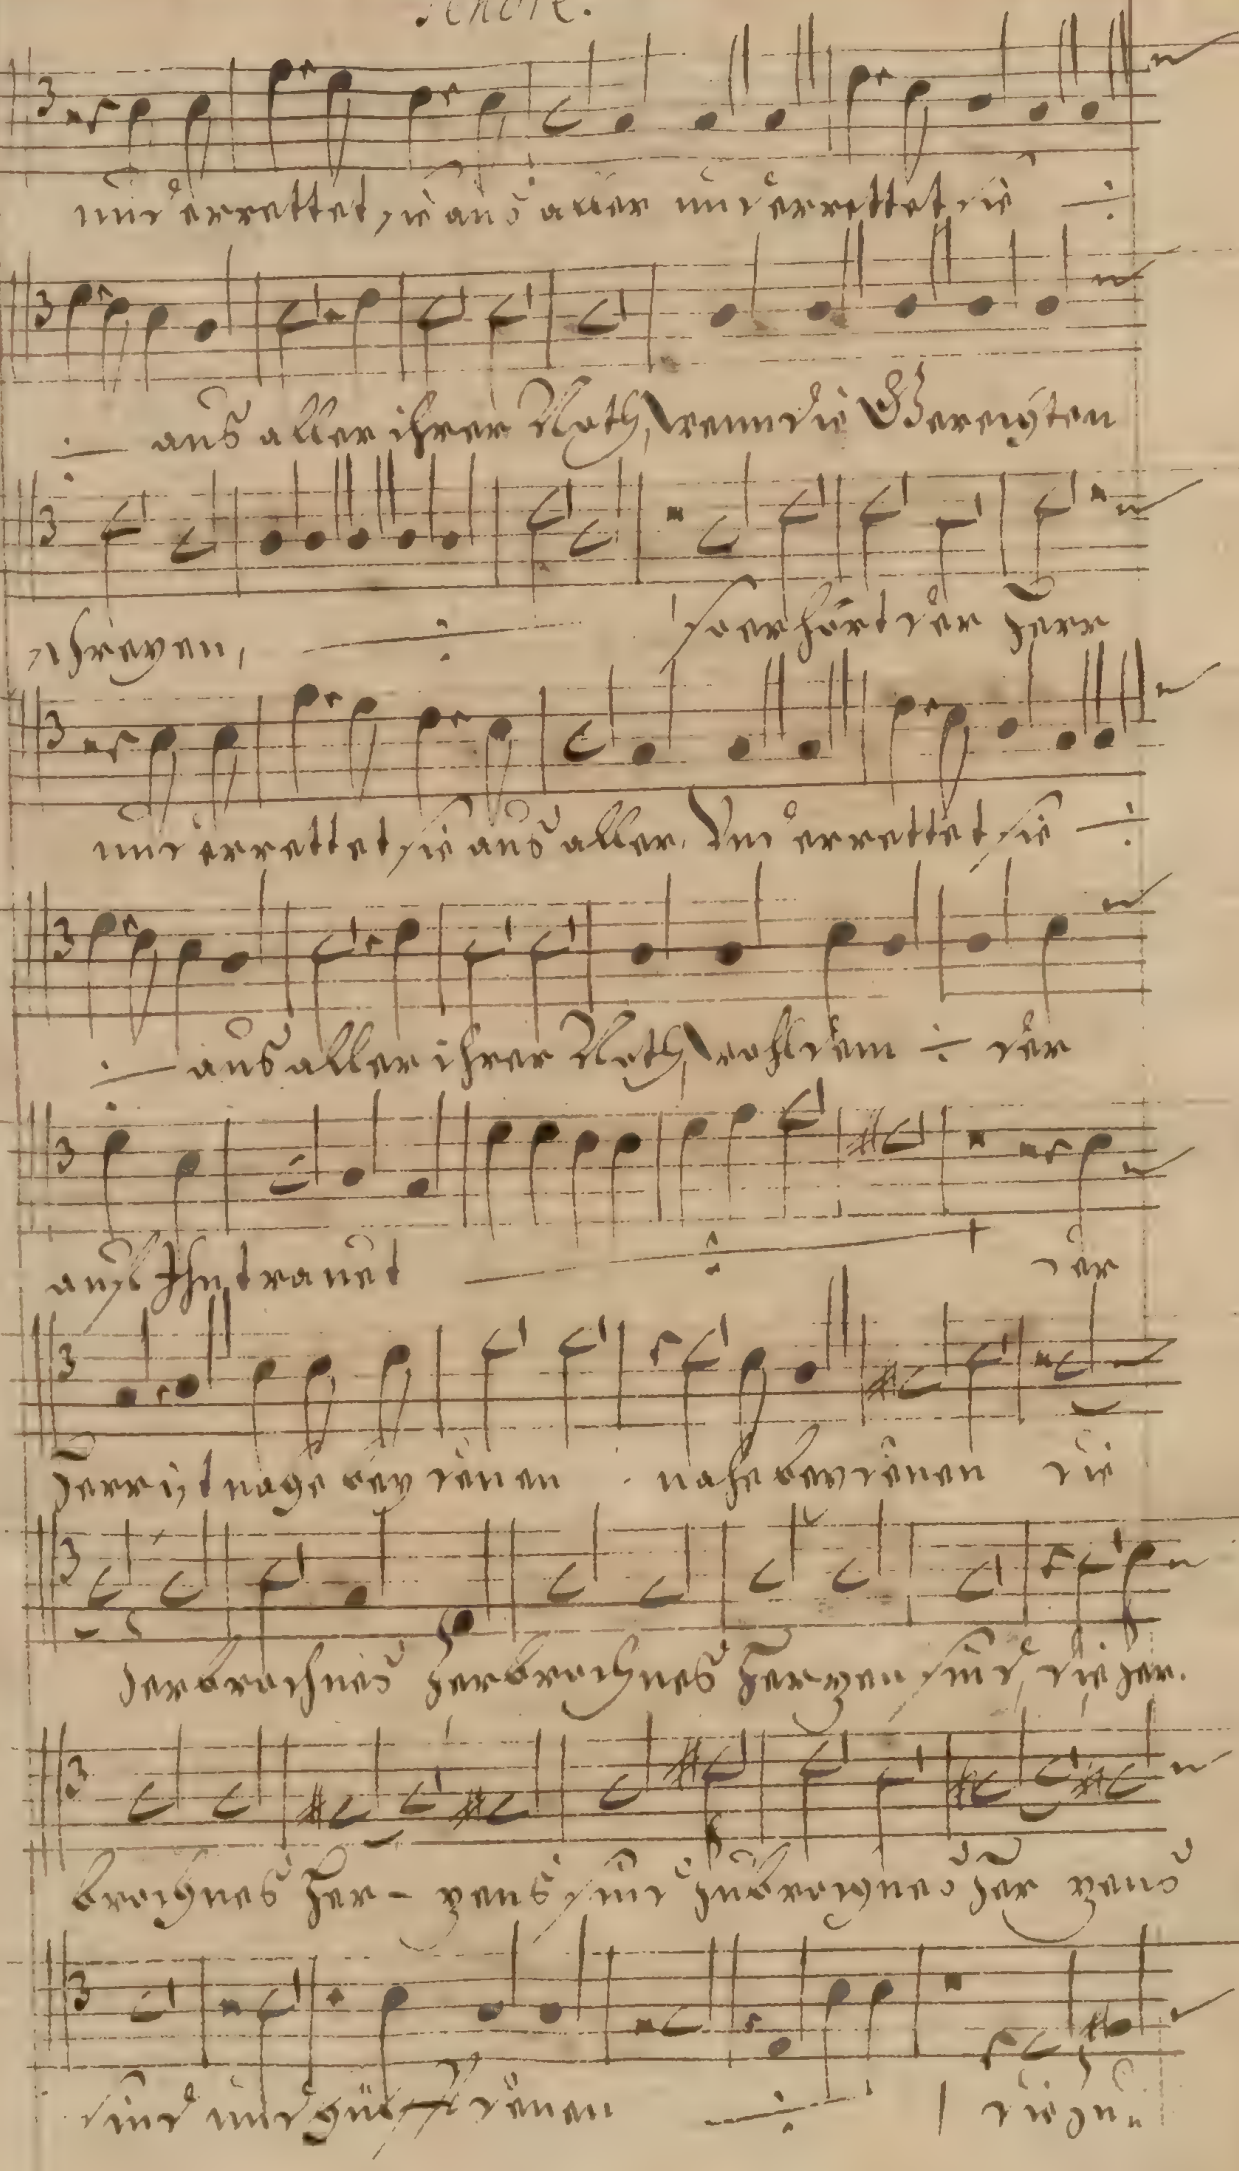 Tenore.
und errettet sie aus aller und errettet sie ÷
÷ aus aller ihrer Noth, wenn die Gerechten
schreyen, ÷ so erhört der Herr
und errettet sie aus aller. Und errettet sie ÷
÷ aus aller ihrer Noth, wohl dem ÷ der
auf Ihn trauet ÷ der
Herr ist nahe bey denen nahe bey denen die
zerbrochnes zerbrochnes Herzen sind, die zer.
brochnes Her- zens sind zubrochnes Her zens
sind und denen ÷ die zu